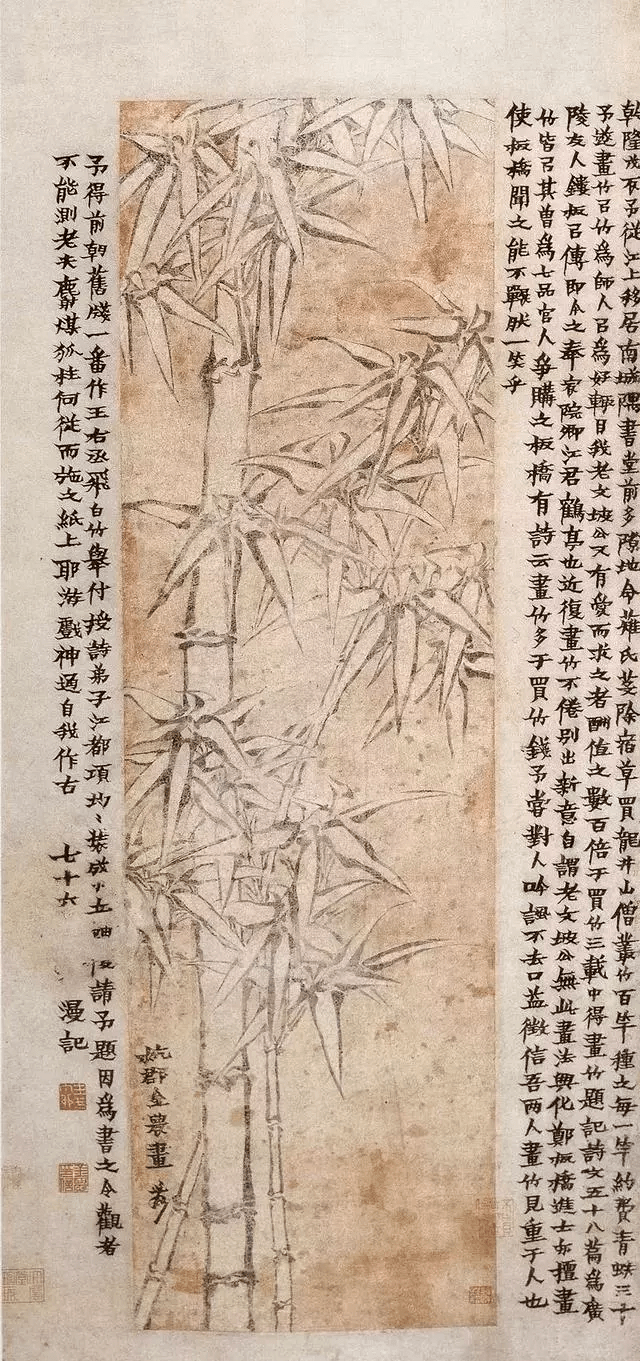 乾隆戊 予從江上移居南城隅書堂前多隙地令薙氏芟除宿草買龍井山僧叢竹百竿種之每一竿約費青蚨三十
予遂畫竹㠯竹為師人㠯為好轉自我老文坡公又有愛而求之者酬值之數百倍于買竹三載中得畫竹題記詩文五十八篇為廣
陵友人鏤板㠯傳即今之奉宸院卿江君鶴亭也近復畫竹不倦別出新意自謂老文坡公無此畫法興化鄭板橋進士亦擅畫
竹皆㠯其曾為七品官人爭購之板橋有詩云畫竹多于買竹錢予嘗對人吟諷不去口益徵信吾兩人畫竹見重于人也
使板橋聞之能不囅然一笑乎
杭郡金農畫
予得前朝舊牋一番作王右丞飛白竹舉付授詩弟子江都項均〻裝成小立軸 請予題因為書之令觀者
不能測老夫麝煤狐柱何從而施之紙上耶游戲神通自我作古
七十六 漫記